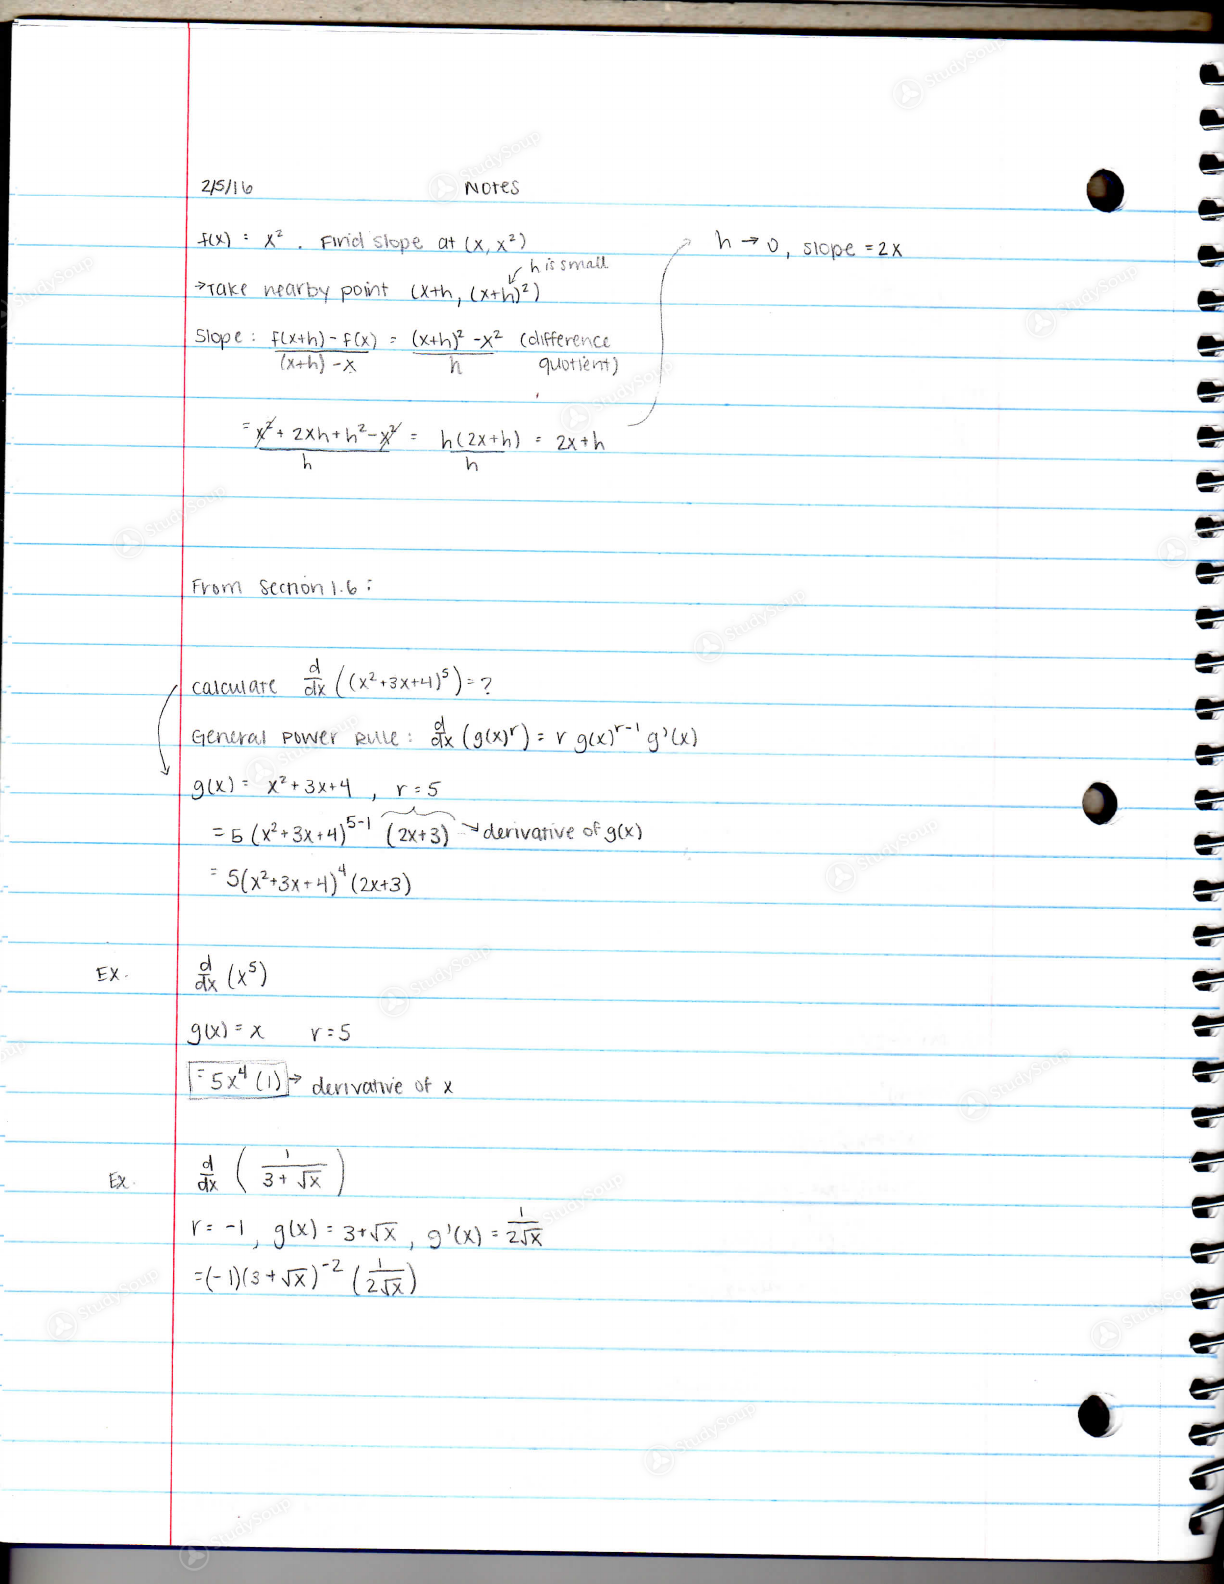 2/5/16 Notes
f(x) = x². Find slope at (x, x²)
h → 0, slope = 2x
h is small
→Take nearby point (x+h, (x+h)²)
Slope: f(x+h) - f(x) / (x+h) - x = (x+h)² - x² / h (difference
quotient)
= x² + 2xh + h² - x² / h = h(2x+h) / h = 2x+h
From Section 1.6:
Calculate d/dx ((x²+3x+4)⁵) = ?
General Power Rule: d/dx (g(x)ʳ) = r g(x)ʳ⁻¹ g'(x)
g(x) = x²+3x+4, r = 5
= 5 (x²+3x+4)⁵⁻¹ (2x+3) → derivative of g(x)
= 5(x²+3x+4)⁴ (2x+3)
EX. d/dx (x⁵)
g(x) = x r = 5
= 5x⁴ (1) → derivative of x
Ex. d/dx (1 / 3+√x)
r = -1, g(x) = 3+√x, g'(x) = 1/2√x
= (-1)(3+√x)⁻² (1/2√x)
StudySoup